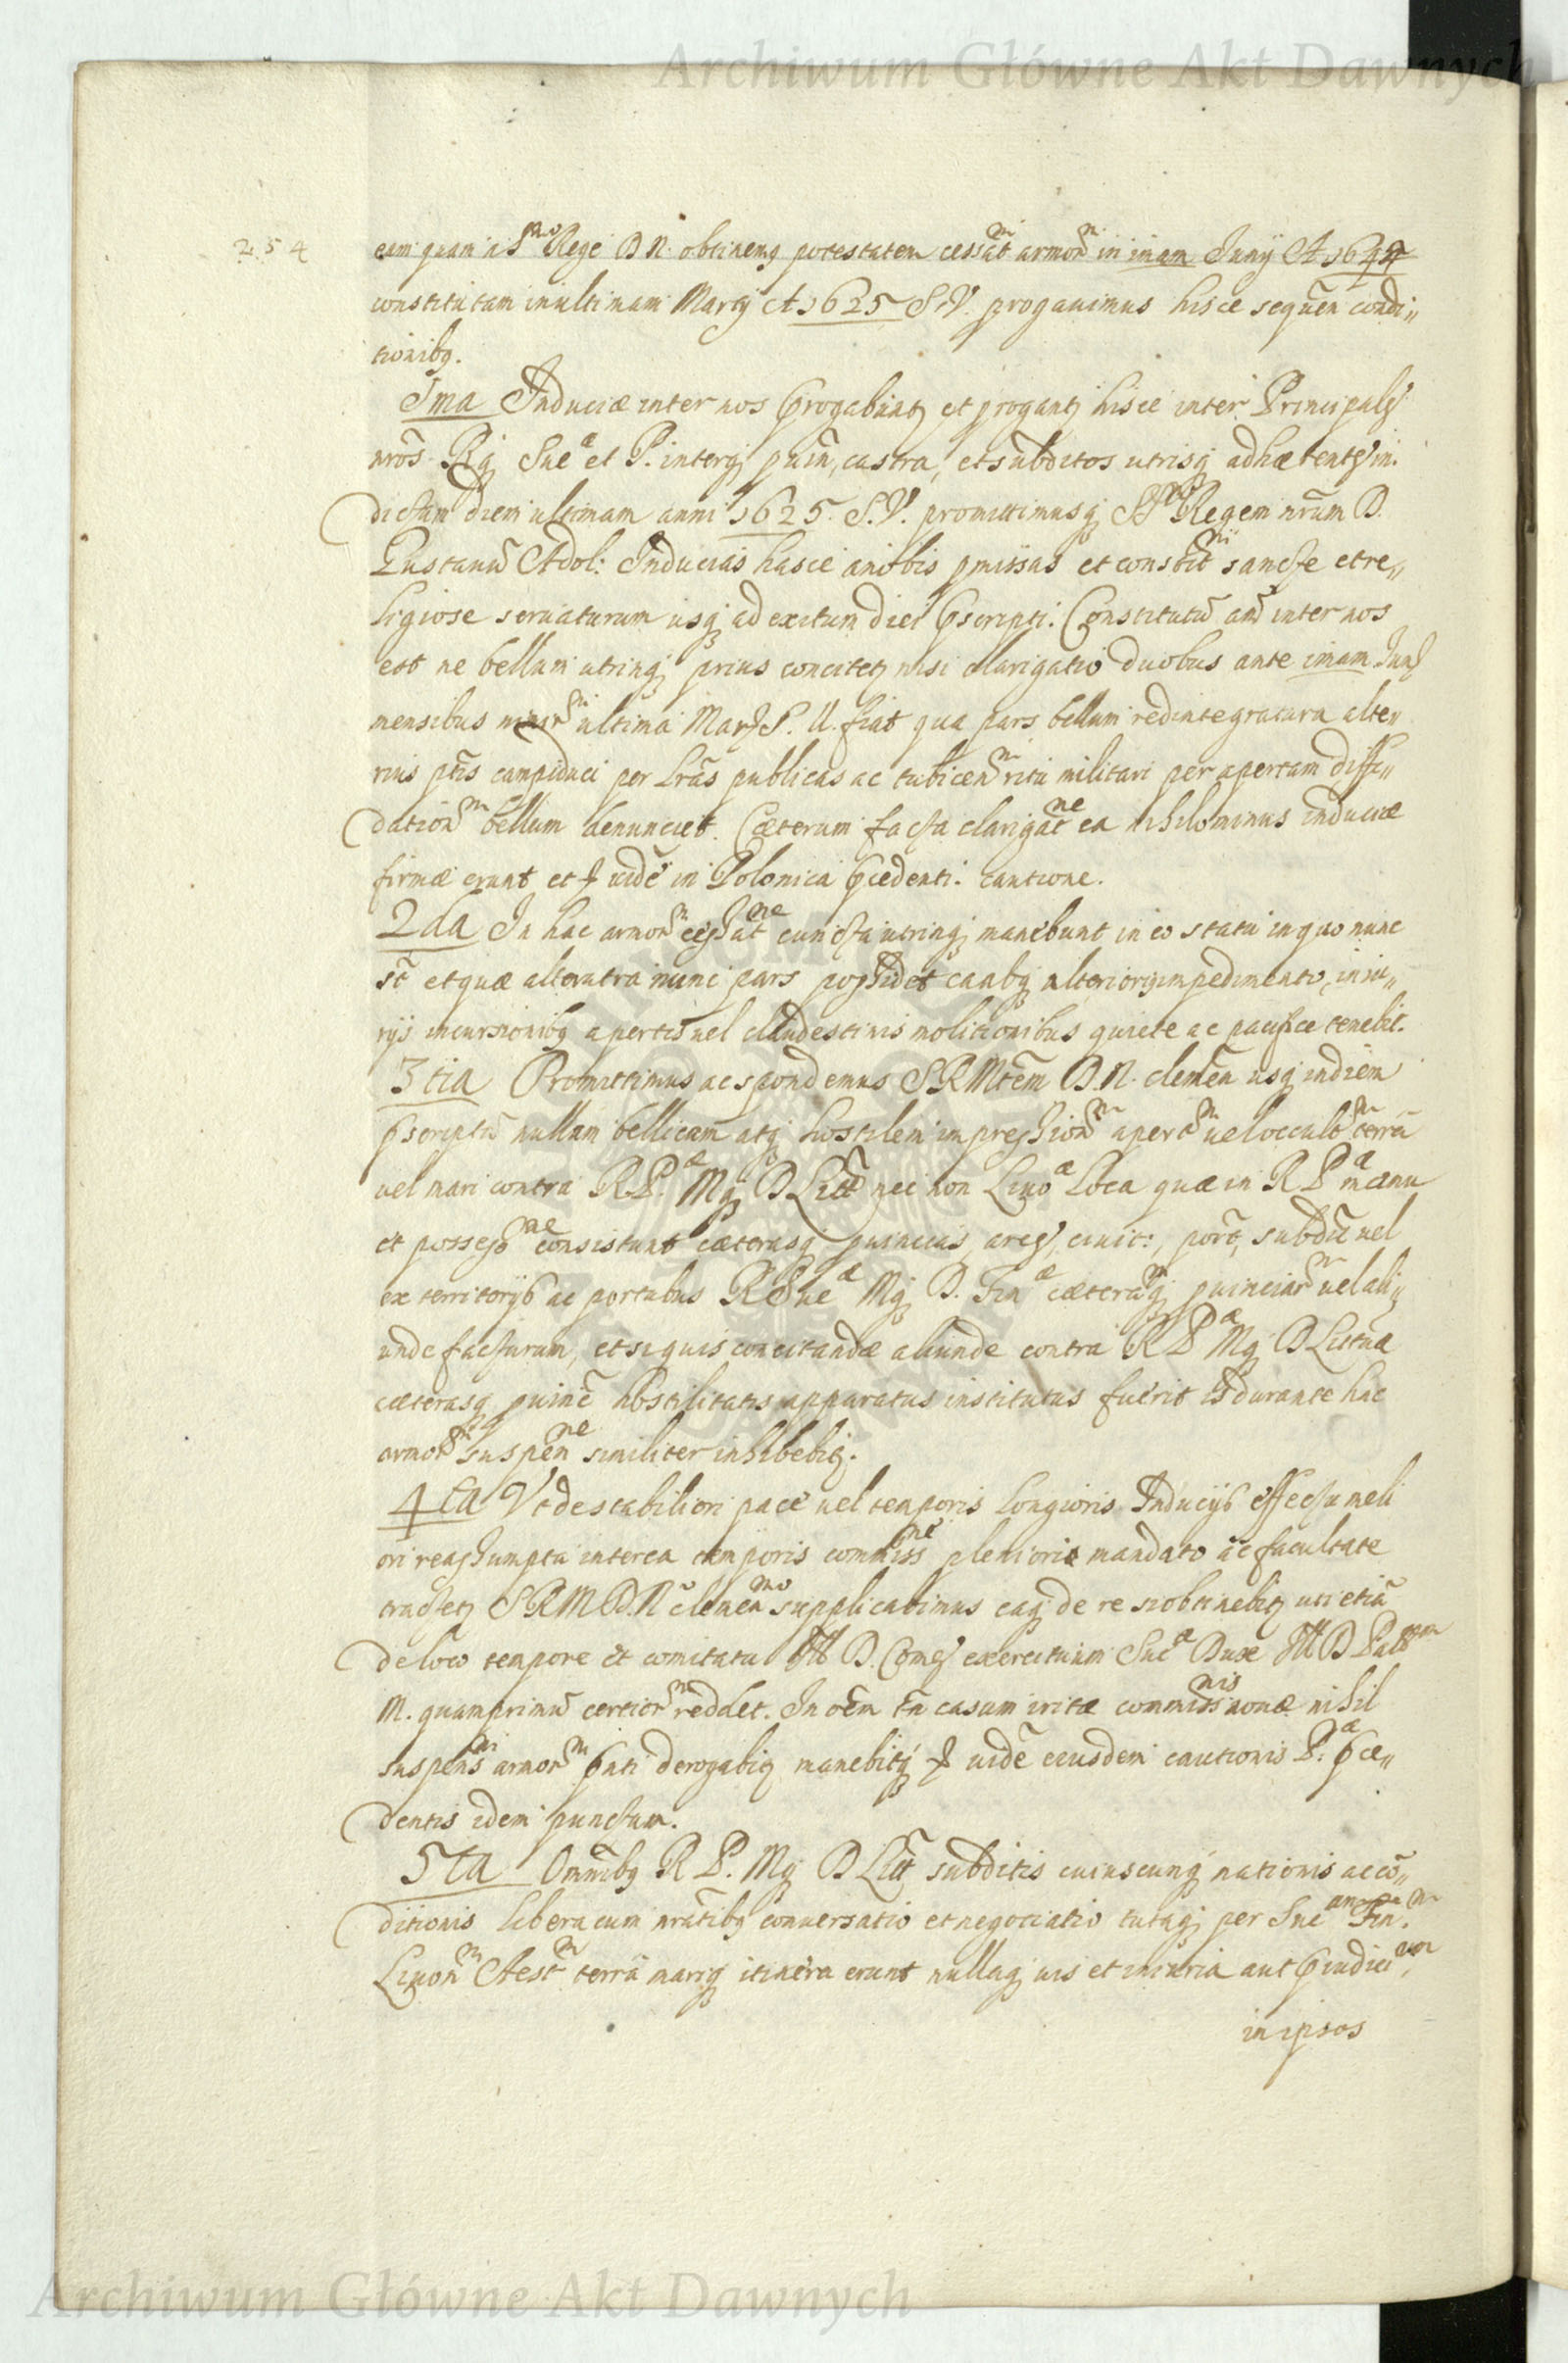 Archiwum Główne Akt Dawnych
254
eam quam a S^mo Rege D N. obtinemq potestatem cessat^m armor^m in imam Junij A 1624
constitutam in ultimam Martij A 1625 S.V. progauimus hisce sequen condi„
tionibq.
Ima Induciæ inter nos et hisce inter Principales
nros Rg Sue^æ et P. interq puin, castra, et subditos utrisq adhærentes in
dictam diem ultimam anni 1625. S.V. promittimusq Regem nrum D.
Gustauu Adol: Inducias hasce a nobis pmissas et constit^ti sancte et re„
ligiose seruaturum usq ad exitum diei pscripti. Constitutu aut inter nos
est ne bellum utrinq prius concitetq nisi clarigatio duobus ante imam Junij
mensibus ultima Martij S. V. fiat qua pars bellum redintegratura alte
rius ptis campiduci per lras publicas ac tubicen^m ritu militari per apertam diffi„
dation^m bellum denunciet. Cæterum facta clarigat^ne ea nihilominus induciæ
firmæ erunt et uide in Polonica pcedenti cautione.
2da In hac armor^m cessat^ne cuncta utrinq manebunt in eo statu in quo nunc
st et quæ alterutra nunc pars possidet ea absq impedimento, iniu„
rijs incursionibq apertis uel clandestinis molitionibus quiete ac pacifice tenebit.
3tia Promittimus ac spondemus S R Mtem D. N. clemen usq in diem
pscriptu nullam bellicam atq hostilem impression^m apert^m uel occult^m terra
uel mari contra R P.^æ Mq D Litt nec non Liuo^æ Loca quæ in R P^æ manu
et possess^ne consistunt cæterasq puincias, arces, ciuit:, port, subdit uel
ex territorijs ac portubus R Sue^æ Mq D. Fin^æ cæterarq puinciar^m uel ali„
unde facturum, et si quis concitandæ aliunde contra R P^æ Mq D Littua
cæterasq puinc hostilitatis apparatus institutus fuerit is durante hac
armor^m suspen^ne similiter inhibebitq.
4ta Vt de stabiliori pace uel temporis longioris Inducijs effectu meli
ori reassumpta interea temporis commiss^ne pleniori mandato ac facultate
tractetq S R M D. N clemen^mo supplicabimus eaq de re si obtinebitq uti etia
de loco tempore et comitatu D. Comes exercituum Sue^æ Dux D Palt^num
M. quamprimu certior^m reddet. In oem tn casum iritæ commiss^nis nouæ nihil
suspens^ni armor^m pnti derogabitq manebitq uide eiusdem cautionis P.^æ pce„
dentis idem punctum.
5ta Omnibq R P. Mq D Litt subditis cuiuscunq nationis ac co„
ditionis libera cum nratibq conuersatio et negociatio tutaq per Sue^am Fin^m.
Liuon^m Aest^m terra mariq itinera erunt nullaq uis et iniuria aut piudici^um
in ipsos
Archiwum Główne Akt Dawnych